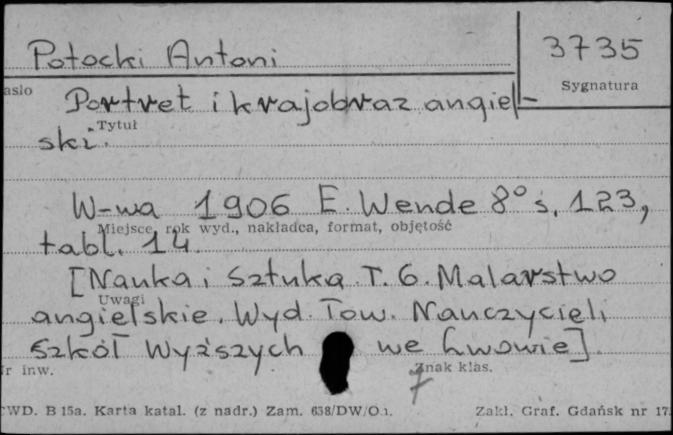 Potocki Antoni
3735
Sygnatura
asło
Portret i krajobraz angiel-
Tytuł
ski.
W-wa 1906 E. Wende 8° s. 123,
Miejsce, rok wyd., nakładca, format, objętość
tabl. 14.
[Nauka i Sztuka T. 6. Malarstwo
Uwagi
angielskie. Wyd. Tow. Nauczycieli
Szkół Wyższych we Lwowie]
r inw.
Znak klas.
WD. B 15a. Karta katal. (z nadr.) Zam. 638/DW/O.
Zakł. Graf. Gdańsk nr 17